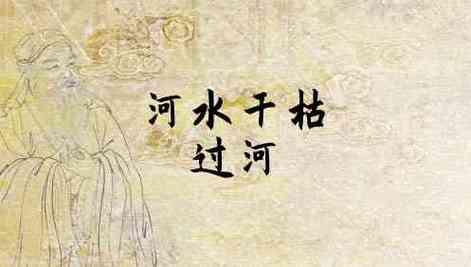 河水干枯
过河